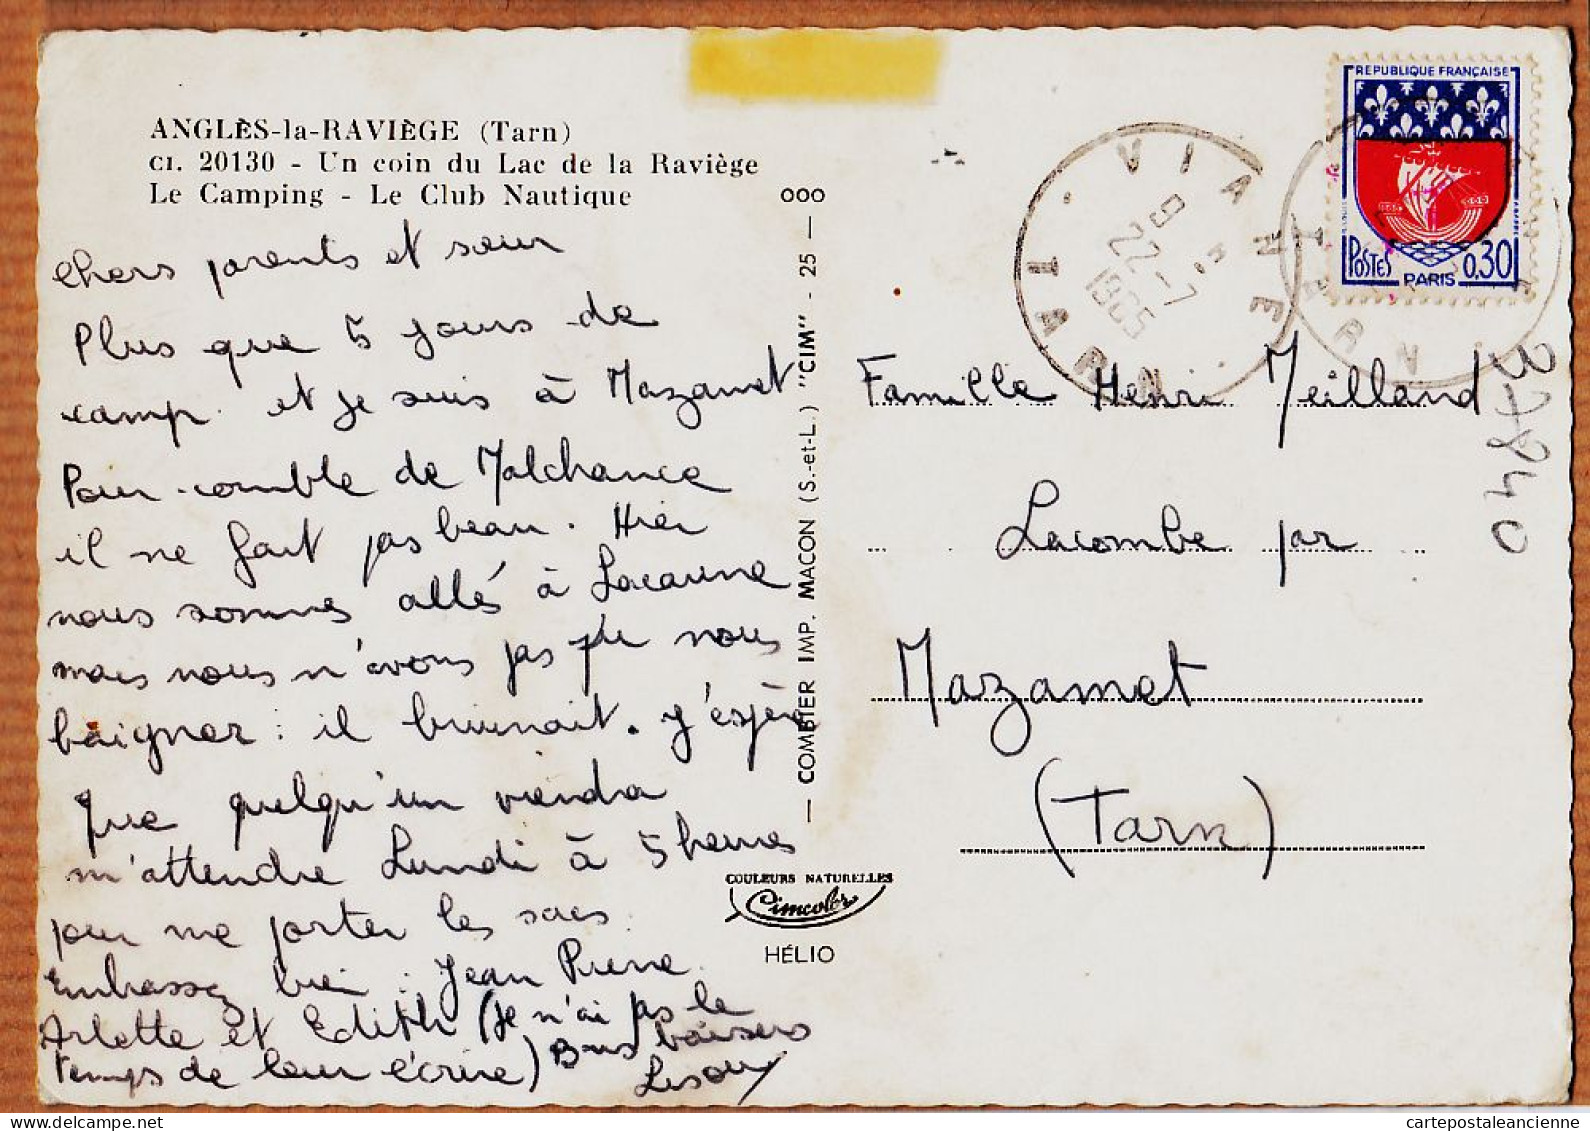 ANGLÈS-la-RAVIÈGE (Tarn)
CI. 20130 - Un coin du Lac de la Raviège
Le Camping - Le Club Nautique
Chers parents et sœur
Plus que 5 jours de
camp. et je suis à Mazamet
Pour comble de Malchance
il ne fait pas beau. Hier
nous sommes allés à Lacaune
mais nous n'avons pas pu nous
baigner : il bruinait. J'espère
que quelqu'un viendra
m'attendre Lundi à 5 heures
pour me porter les sacs.
Embrassez bien : Jean Pierre
Arlette et Edith (je n'ai pas le
temps de leur écrire) Bons baisers
COMBIER IMP. MACON (S.-et-L.) "CIM" - 25 - 000
COULEURS NATURELLES
Cimcolor
HÉLIO
VIANE
TARN
22-7
1965
REPUBLIQUE FRANÇAISE
POSTES PARIS 0,30
Famille Henri Meilland
Lacombe par
Mazamet
(Tarn)
cartepostaleancienne.com